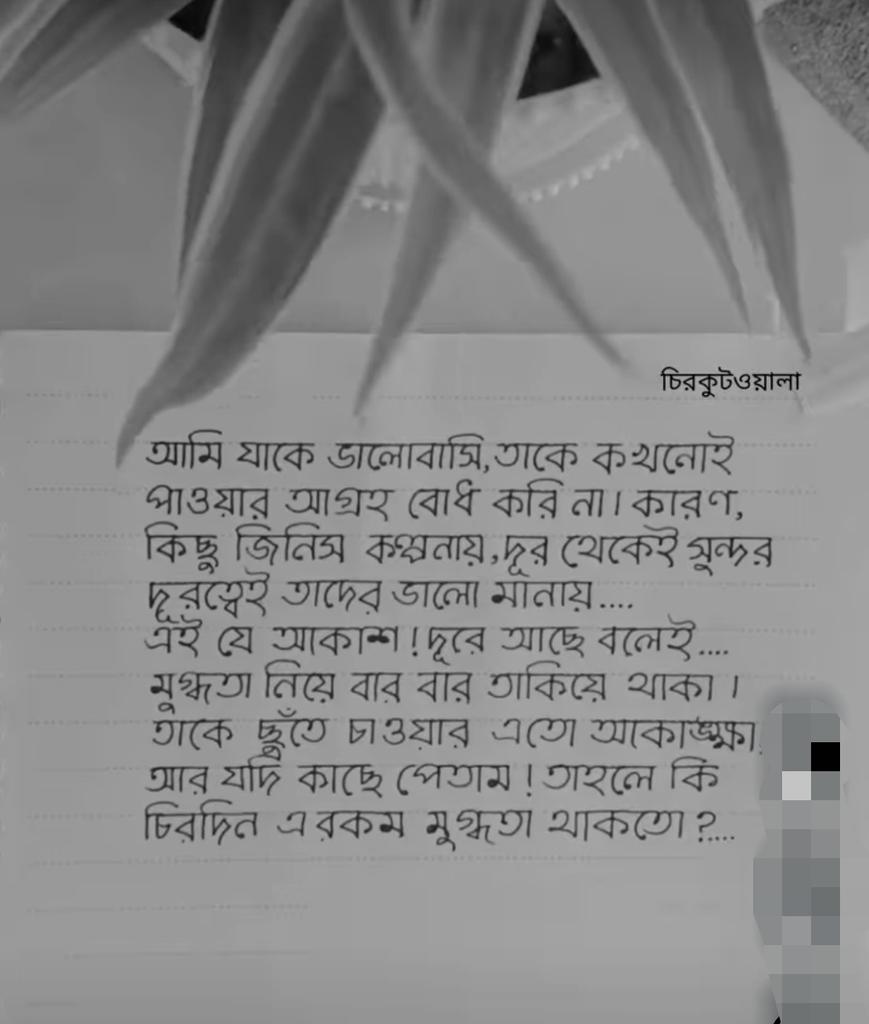 চিরকুটওয়ালা
আমি যাকে ভালোবাসি, তাকে কখনোই
পাওয়ার আগ্রহ বোধ করি না। কারণ,
কিছু জিনিস কল্পনায়, দূর থেকেই সুন্দর
দূরত্বেই তাদের ভালো মানায়....
এই যে আকাশ! দূরে আছে বলেই....
মুগ্ধতা নিয়ে বার বার তাকিয়ে থাকা।
তাকে ছুঁতে চাওয়ার এতো আকাঙ্ক্ষা
আর যদি কাছে পেতাম! তাহলে কি
চিরদিন এরকম মুগ্ধতা থাকতো?....